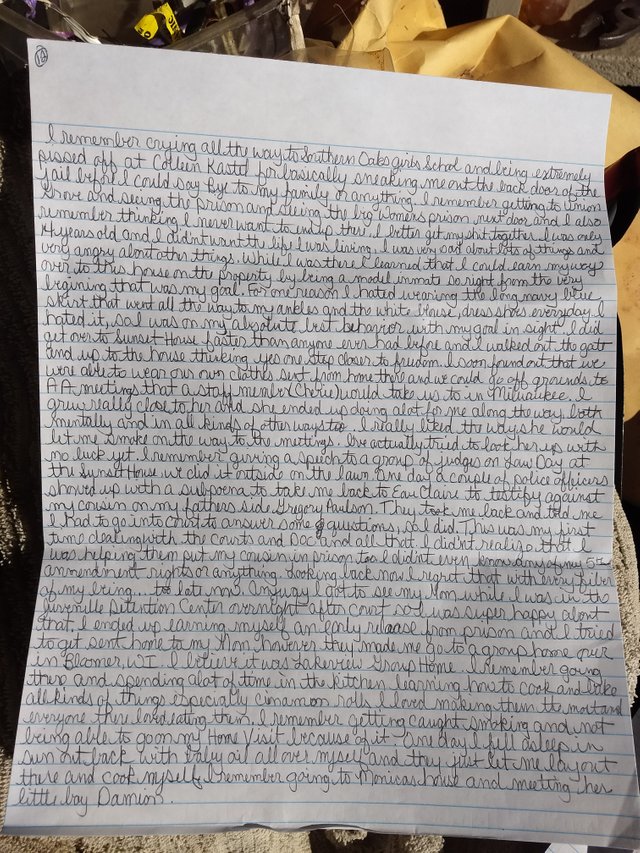 12
I remember crying all the way to Southern Oaks girls School and being extremely
pissed off at Colleen Kastel for basically sneaking me out the back door of the
jail before I could say bye to my family or anything. I remember getting to Union
Grove and seeing the prison and seeing the big womens prison next door and I also
remember thinking I never want to end up there. I better get my shit together. I was only
14 years old and I didn't want the life I was living. I was very sad about lots of things and
very angry about other things. While I was there I learned that I could earn my way
over to this house on the property by being a model inmate so right from the very
begining that was my goal. For one reason I hated wearing the long navy blue
skirt that went all the way to my ankles and the white blouse, dress shoes everyday. I
hated it, so I was on my absolute best behavior with my goal in sight. I did
get over to Sunset House faster than anyone ever had before and I walked out the gate
and up to the house thinking yes one step closer to freedom. I soon found out that we
were able to wear our own clothes sent from home there and we could go off grounds to
AA meetings that a staff member (Cherie) would take us to in Milwaukee. I
grew really close to her and she ended up doing alot for me along the way both
mentally and in all kinds of other ways too. I really liked the way she would
let me smoke on the way to the meetings. I've actually tried to look her up with
no luck yet. I remember giving a speech to a group of judges on Law Day at
the Sunset House, we did it outside on the lawn. One day a couple of police officers
showed up with a subpoena to take me back to Eau Claire to testify against
my cousin on my fathers side Gregory Paulson. They took me back and told me
I had to go into court to answer some questions, so I did. This was my first
time dealing with the courts and Docs and all that I didn't realize that I
was helping them put my cousin in prison too I didn't even know any of my 5th
ammendment rights or anything. Looking back now I regret that with every fiber
of my being... to late now. Anyway I got to see my Mom while I was in the
juvenille Detention Center overnight after court so I was super happy about
that. I ended up earning myself an early release from prison and I tried
to get sent home to my Mom however they made me go to a group home over
in Bloomer, WI. I believe it was Lakeview Group Home. I remember going
there and spending alot of time in the kitchen learning how to cook and bake
all kinds of things especially cinnamon rolls. I loved making them the most and
everyone there loved eating them. I remember getting caught smoking and not
being able to go on my Home Visit because of it. One day I fell asleep in
sun out back with baby oil all over myself and they just let me lay out
there and cook myself. I remember going to Monicas house and meeting her
little boy Damion.